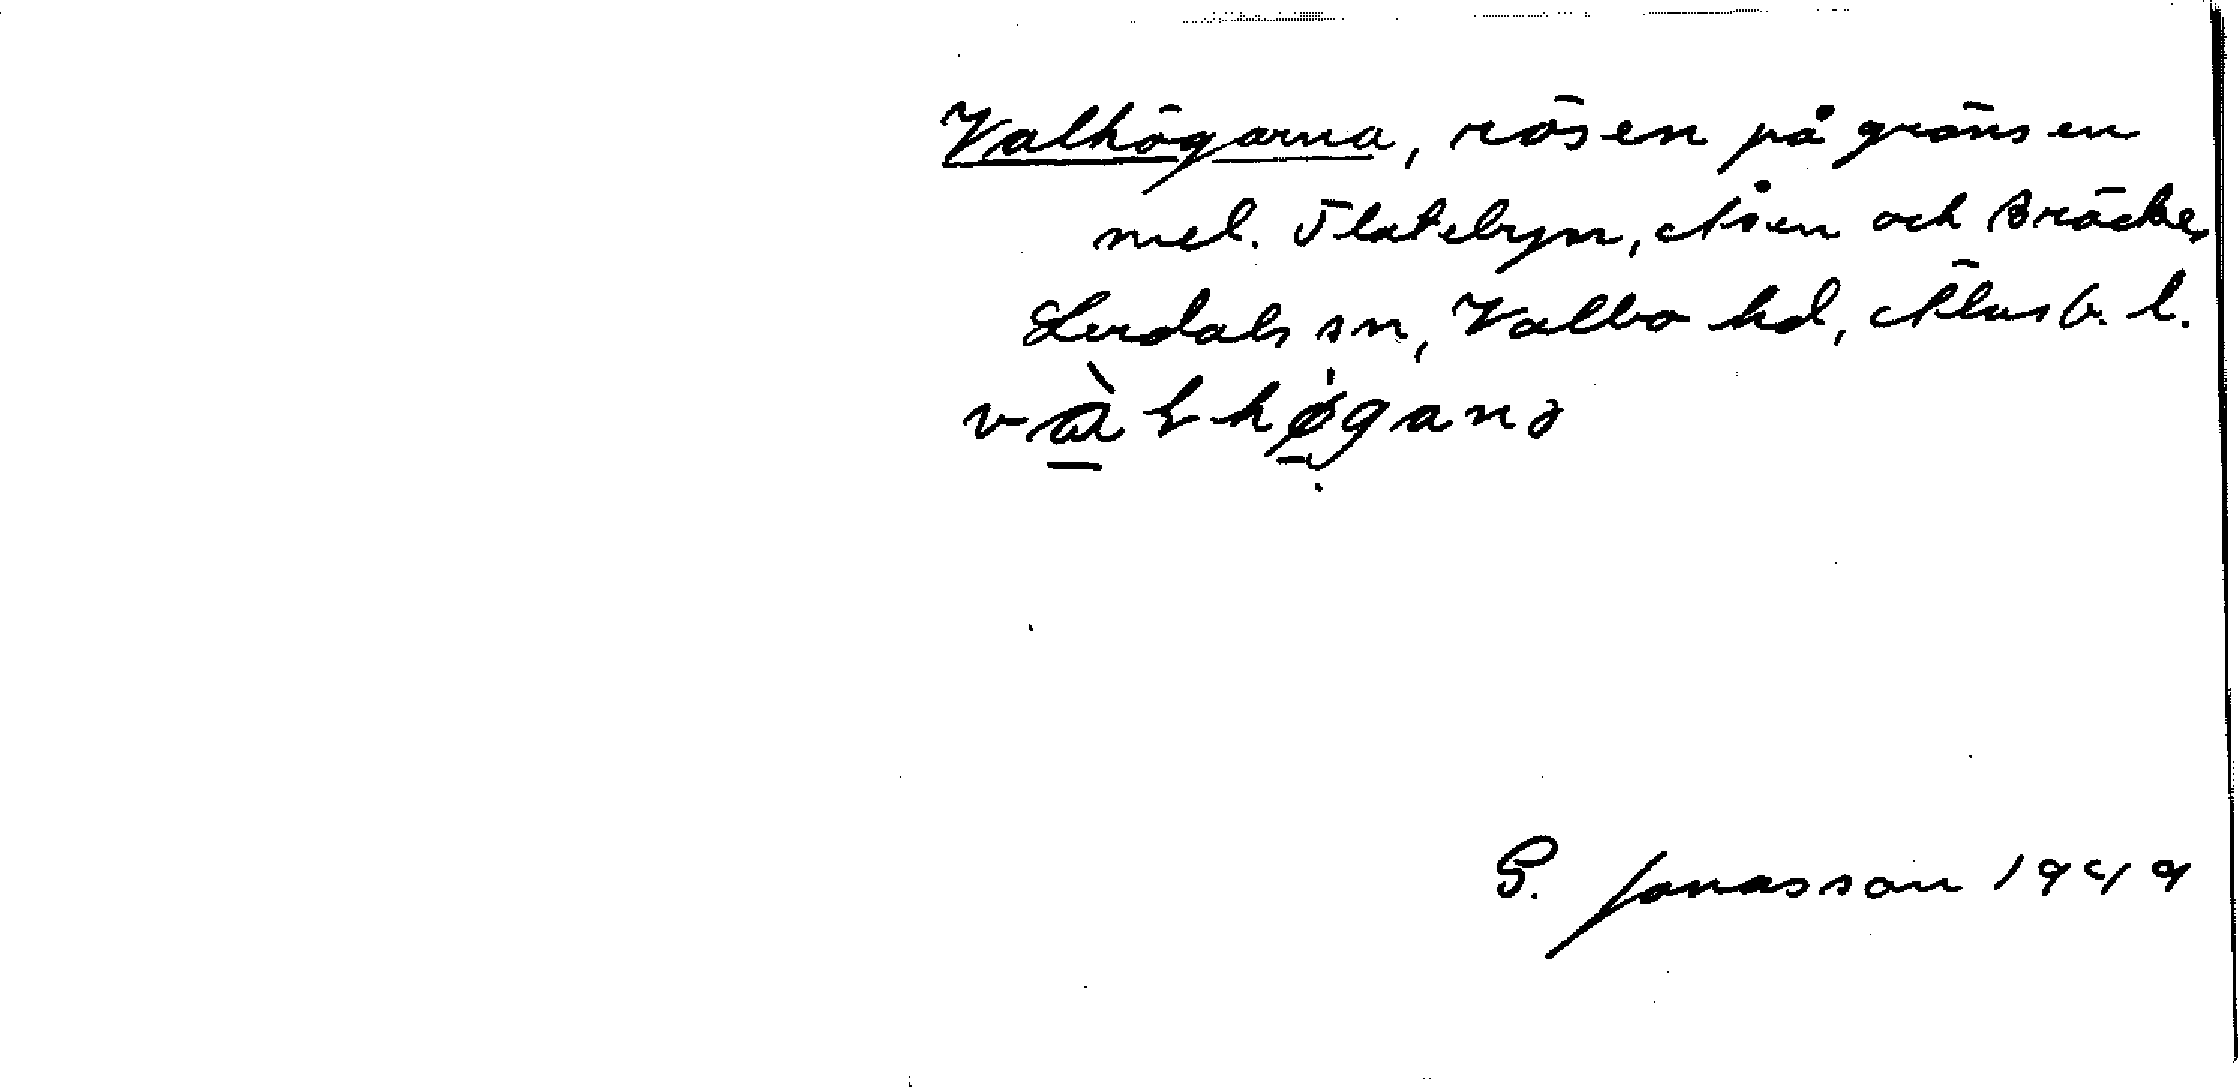 Valhögarna, rösen på gränsen
mel. Flatebyn, Åsen och Bräcke,
Lerdals sn, Valbo hd, Älvsb. l.
vàlhøganə
S. Jonasson 1949